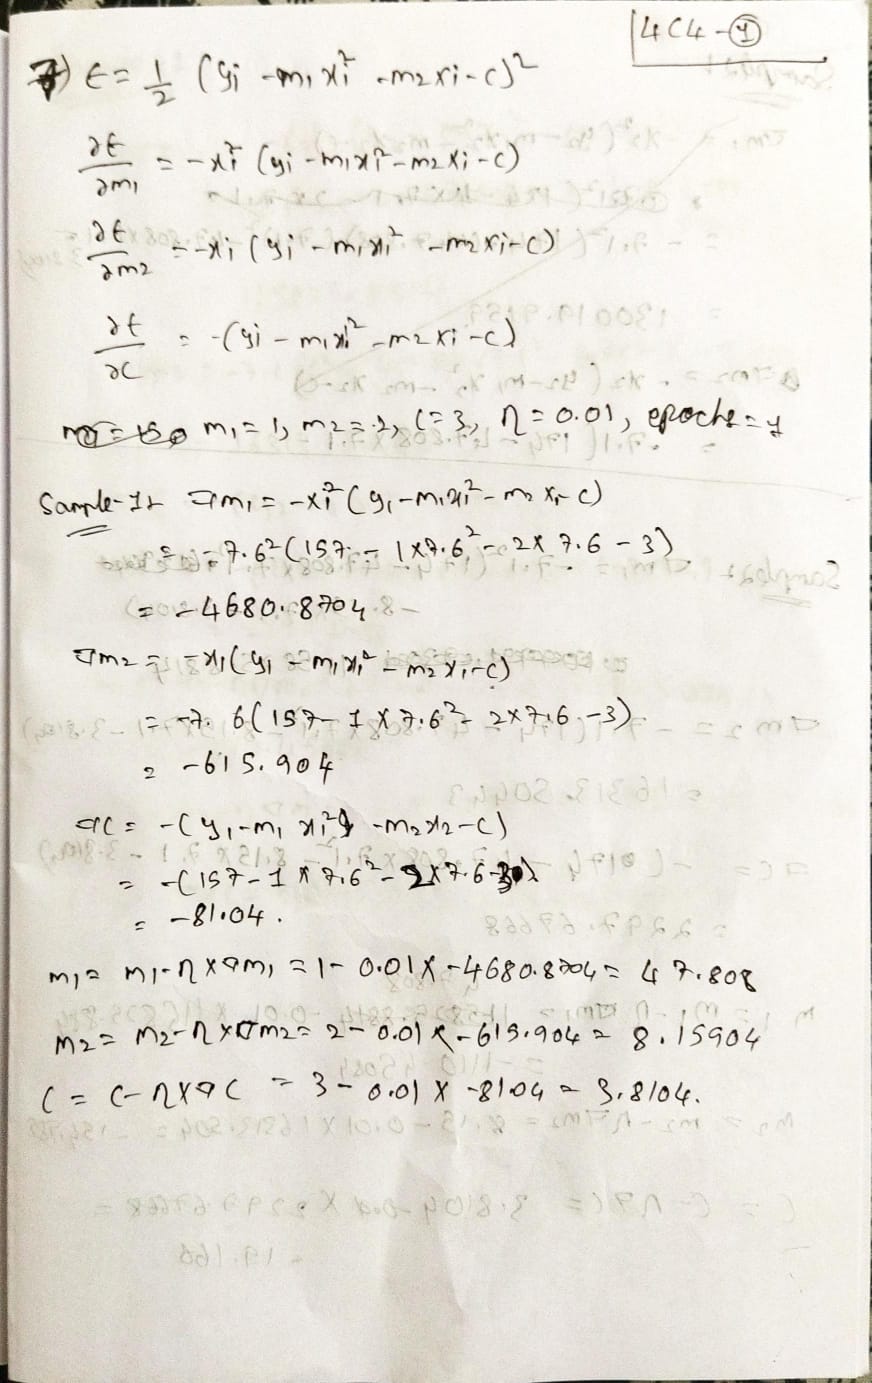 4C4-①
7) E = 1/2 (yi - m1xi² - m2xi - c)²
∂E/∂m1 = -xi² (yi - m1xi² - m2xi - c)
∂E/∂m2 = -xi (yi - m1xi² - m2xi - c)
∂E/∂c = -(yi - m1xi² - m2xi - c)
m1 = 1, m2 = 2, c = 3, η = 0.01, epochs = 1
Sample-1: ∇m1 = -x1² (y1 - m1x1² - m2x1 - c)
= -7.6² (157 - 1×7.6² - 2×7.6 - 3)
= -4680.8704
∇m2 = -x1 (y1 - m1x1² - m2x1 - c)
= -7.6 (157 - 1×7.6² - 2×7.6 - 3)
= -615.904
∇c = -(y1 - m1x1² - m2x2 - c)
= -(157 - 1×7.6² - 2×7.6 - 3)
= -81.04.
m1 = m1 - η×∇m1 = 1 - 0.01×-4680.8704 = 47.808
m2 = m2 - η×∇m2 = 2 - 0.01×-615.904 = 8.15904
c = c - η×∇c = 3 - 0.01×-81.04 = 3.8104.